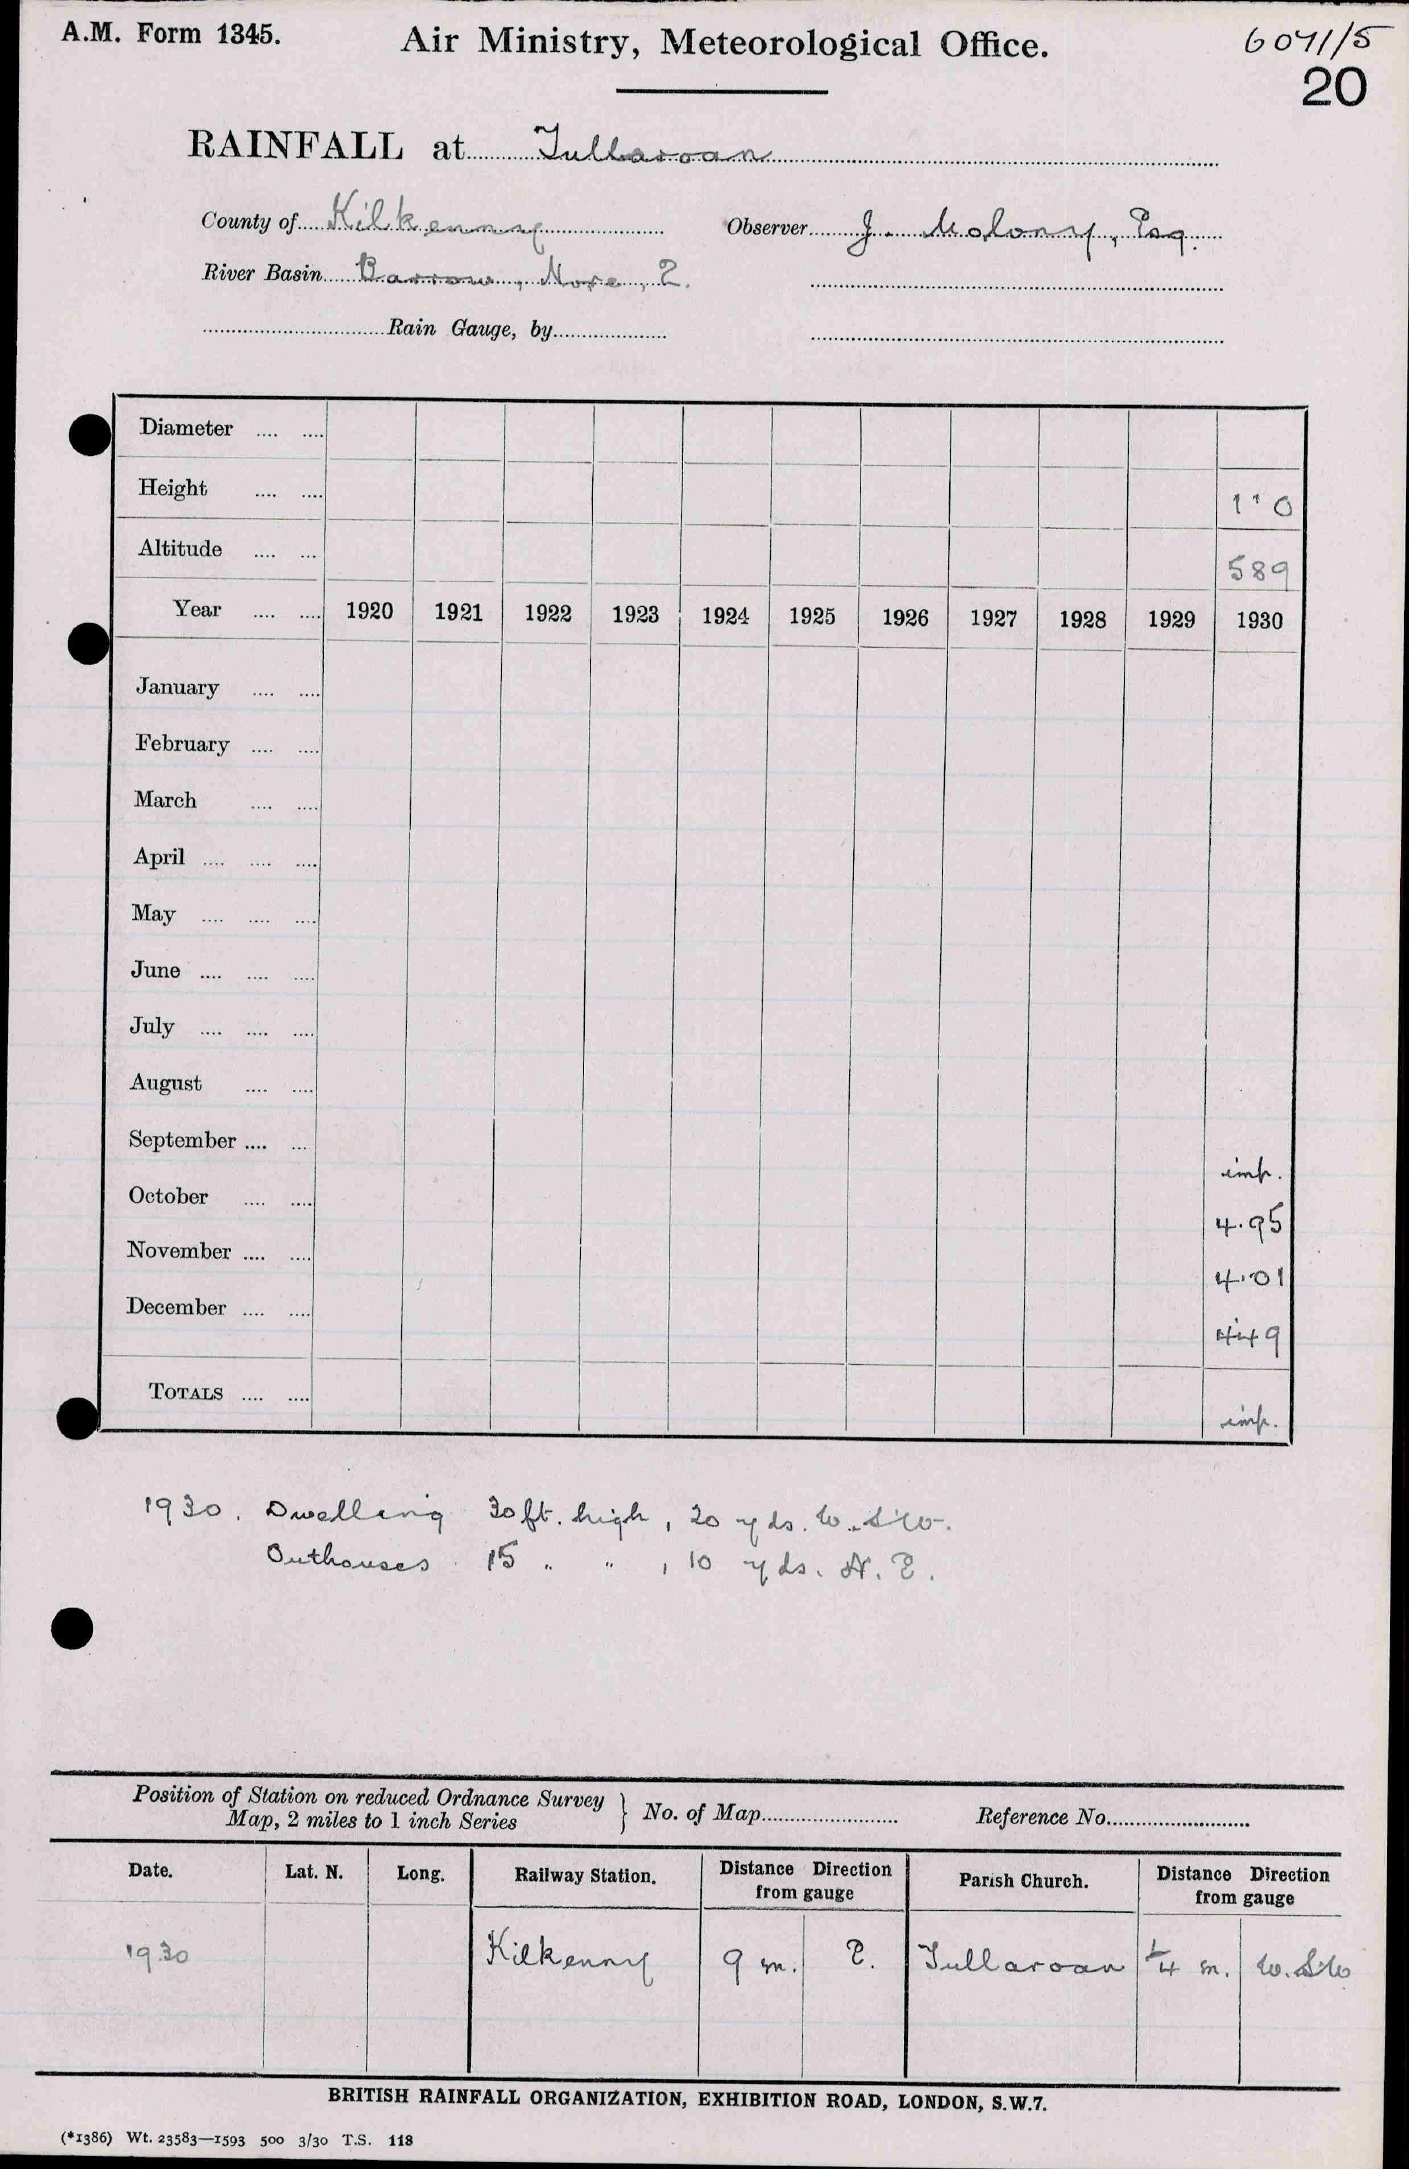 A.M. Form 1345. Air Ministry, Meteorological Office. 6041/5
20
RAINFALL at Tullaroan
County of Kilkenny Observer J. Molony, Esq.
River Basin Barrow, Nore, 2.
Rain Gauge, by
Diameter .... ....
Height .... .... 1' 0
Altitude .... ... 589
Year .... .... 1920 1921 1922 1923 1924 1925 1926 1927 1928 1929 1930
January .... ....
February .... ....
March .... ....
April .... .... ....
May .... .... ....
June .... .... ....
July .... .... ....
August .... ....
September .... ... imp.
October .... .... 4.95
November .... .... 4.01
December .... .... 4.49
TOTALS .... .... imp.
1930. Dwelling 30 ft. high, 20 yds. W.SW.
Outhouses 15 " ", 10 yds. N.E.
Position of Station on reduced Ordnance Survey
Map, 2 miles to 1 inch Series } No. of Map Reference No.
Date. Lat. N. Long. Railway Station. Distance Direction from gauge Parish Church. Distance Direction from gauge
1930 Kilkenny 9 m. E. Tullaroan 1/4 m. W.SW
BRITISH RAINFALL ORGANIZATION, EXHIBITION ROAD, LONDON, S.W.7.
(*1386) Wt. 23583—1593 500 3/30 T.S. 118